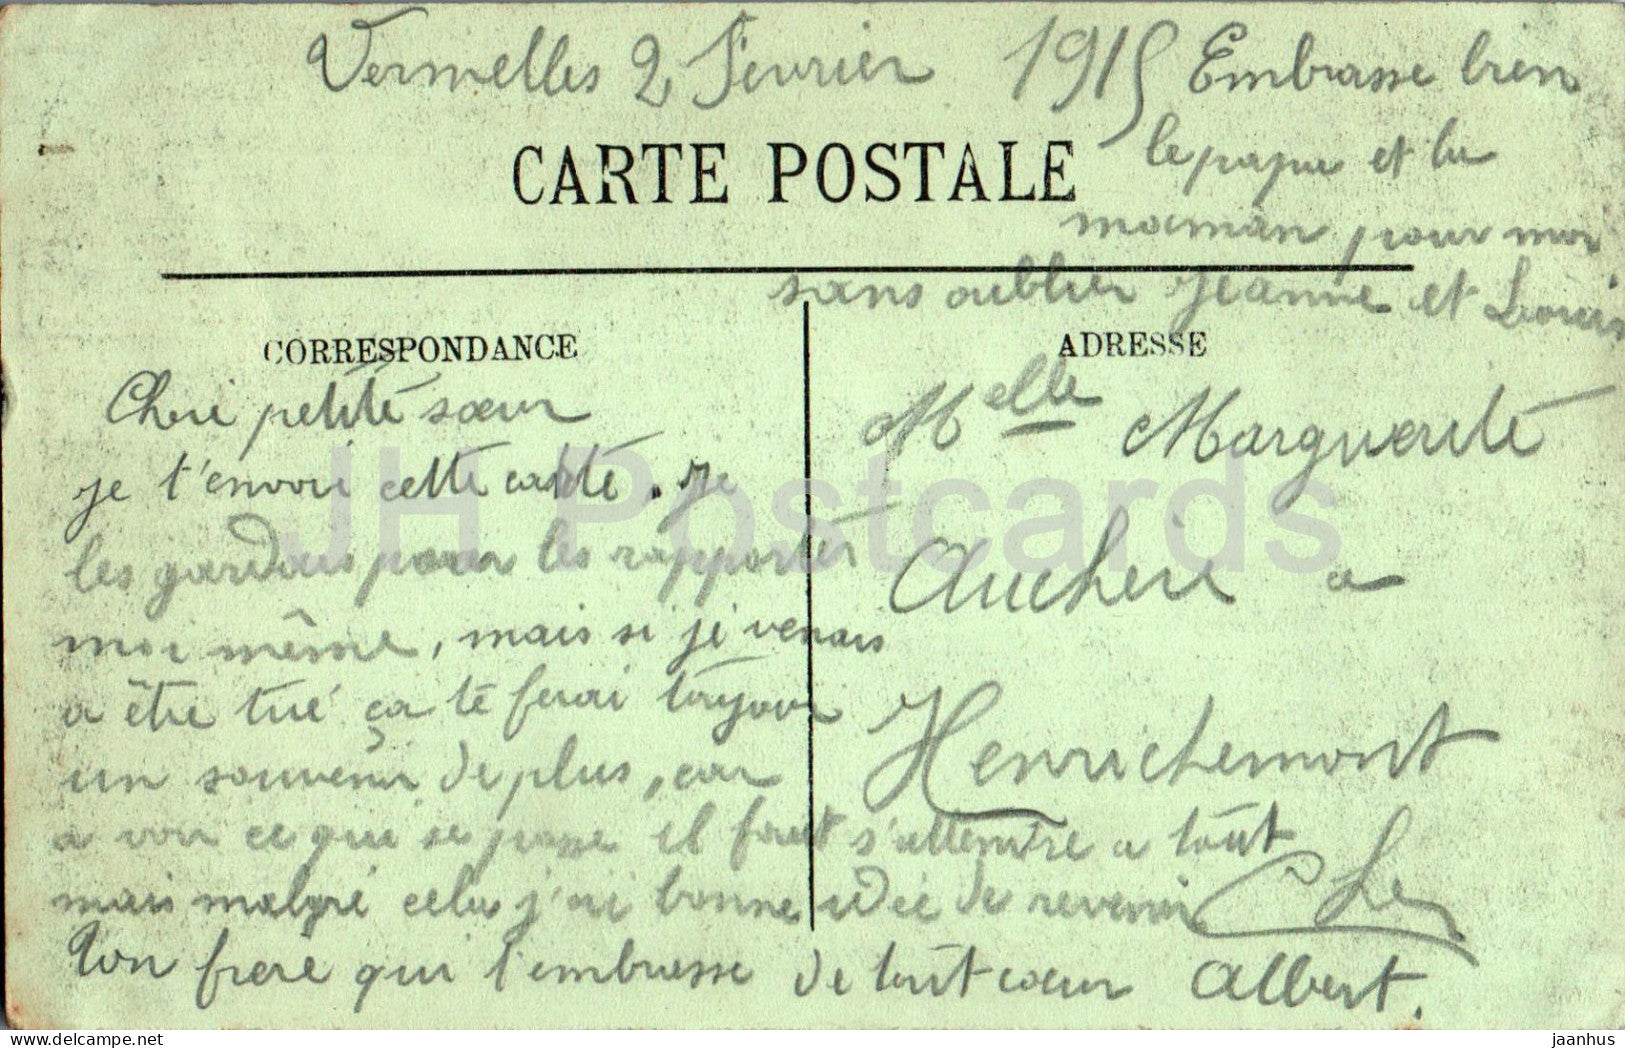 Vermelles 2 Fevrier 1915
Embrasse bien
le papa et la
maman pour moi
sans oublier Jeanne et Louis
CARTE POSTALE
CORRESPONDANCE
ADRESSE
Cheri petite sœur
je t'envoie cette carte. je
les gardais pour les rapporter
moi même, mais si je venais
a être tué ça te ferai toujour
un souvenir de plus, car
a voir ce que se passe il faut s'attendre a tout
mais malgré cela j'ai bonne idée de revenir
Ton frere qui t'embrasse de tout cœur Albert.
Melle Marguerite
Auchere a
Henrichemont
Cher
JH Postcards
www.delcampe.net
jaanhus